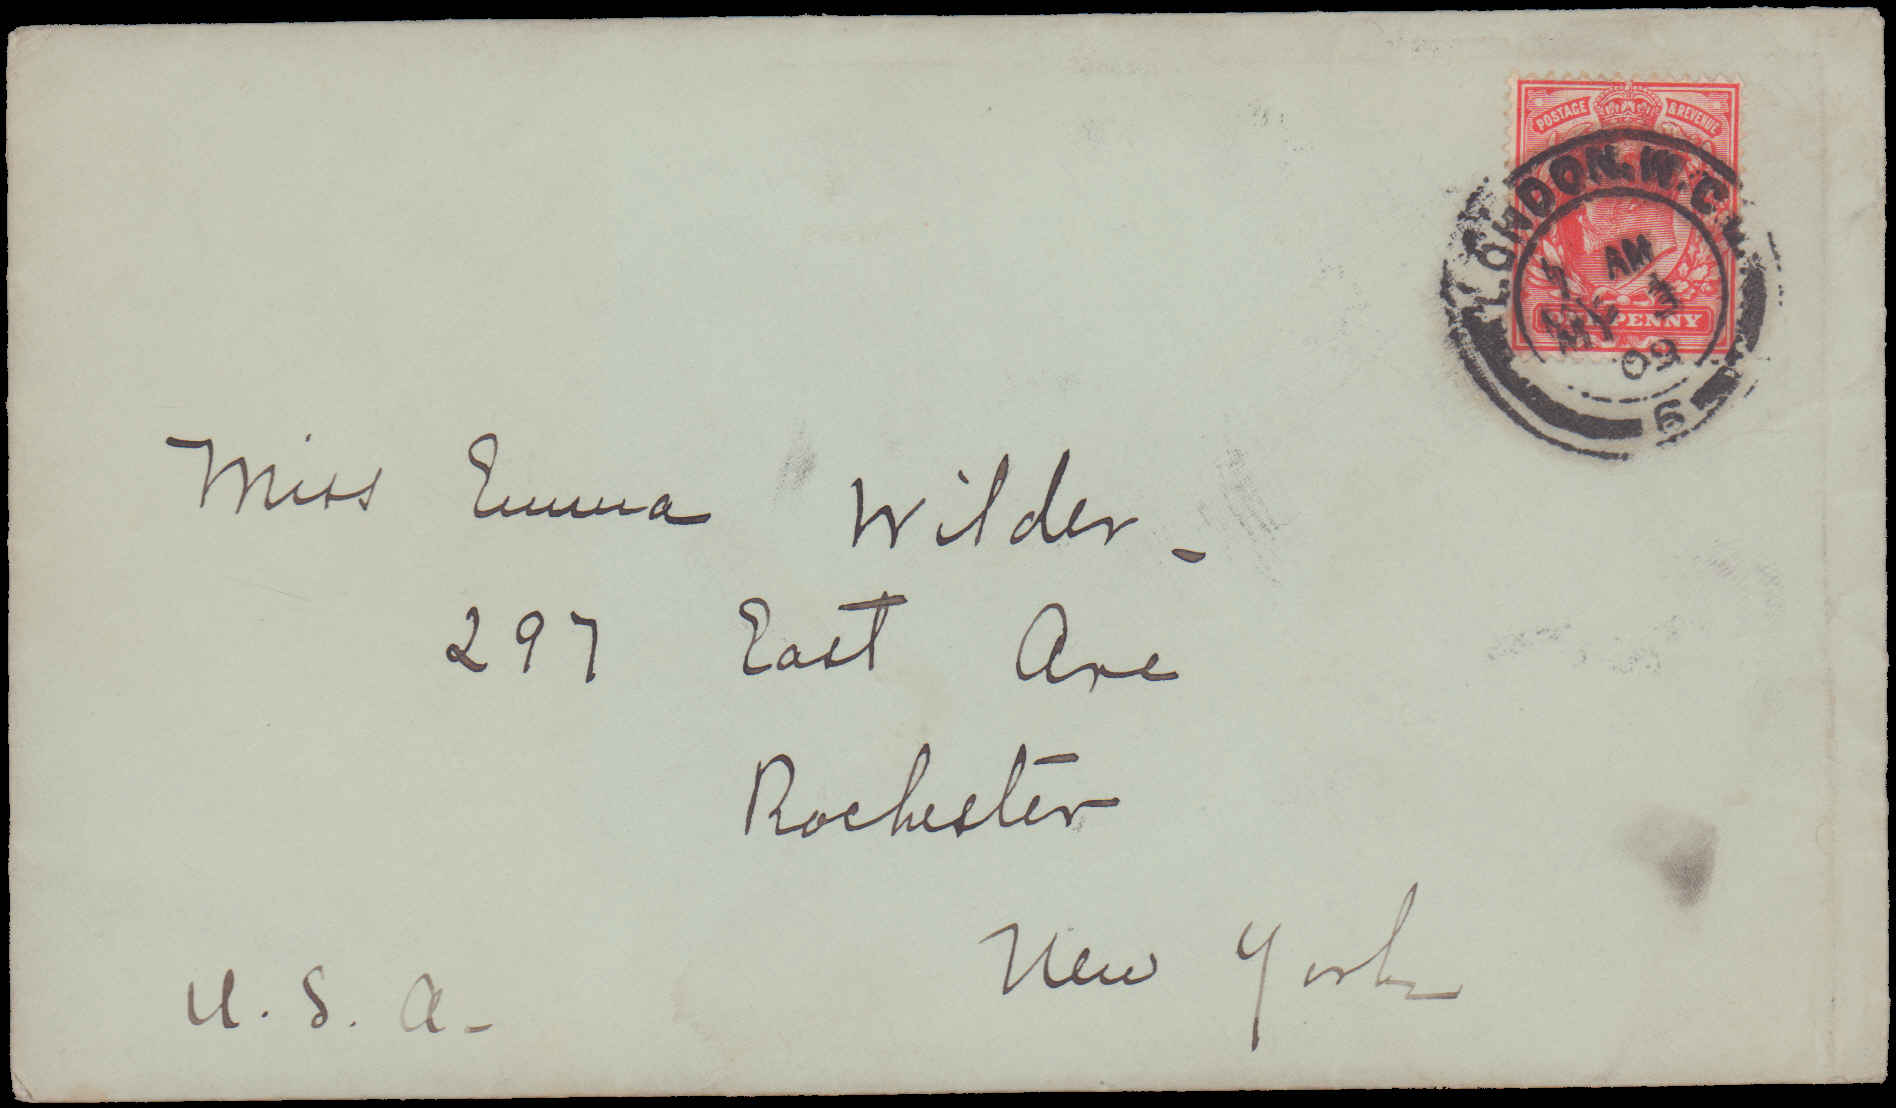 POSTAGE & REVENUE
LONDON. W.C.
AM
MY
09
6
ONE PENNY
Miss Emma Wilder -
297 East Ave
Rochester
New York
U. S. A -